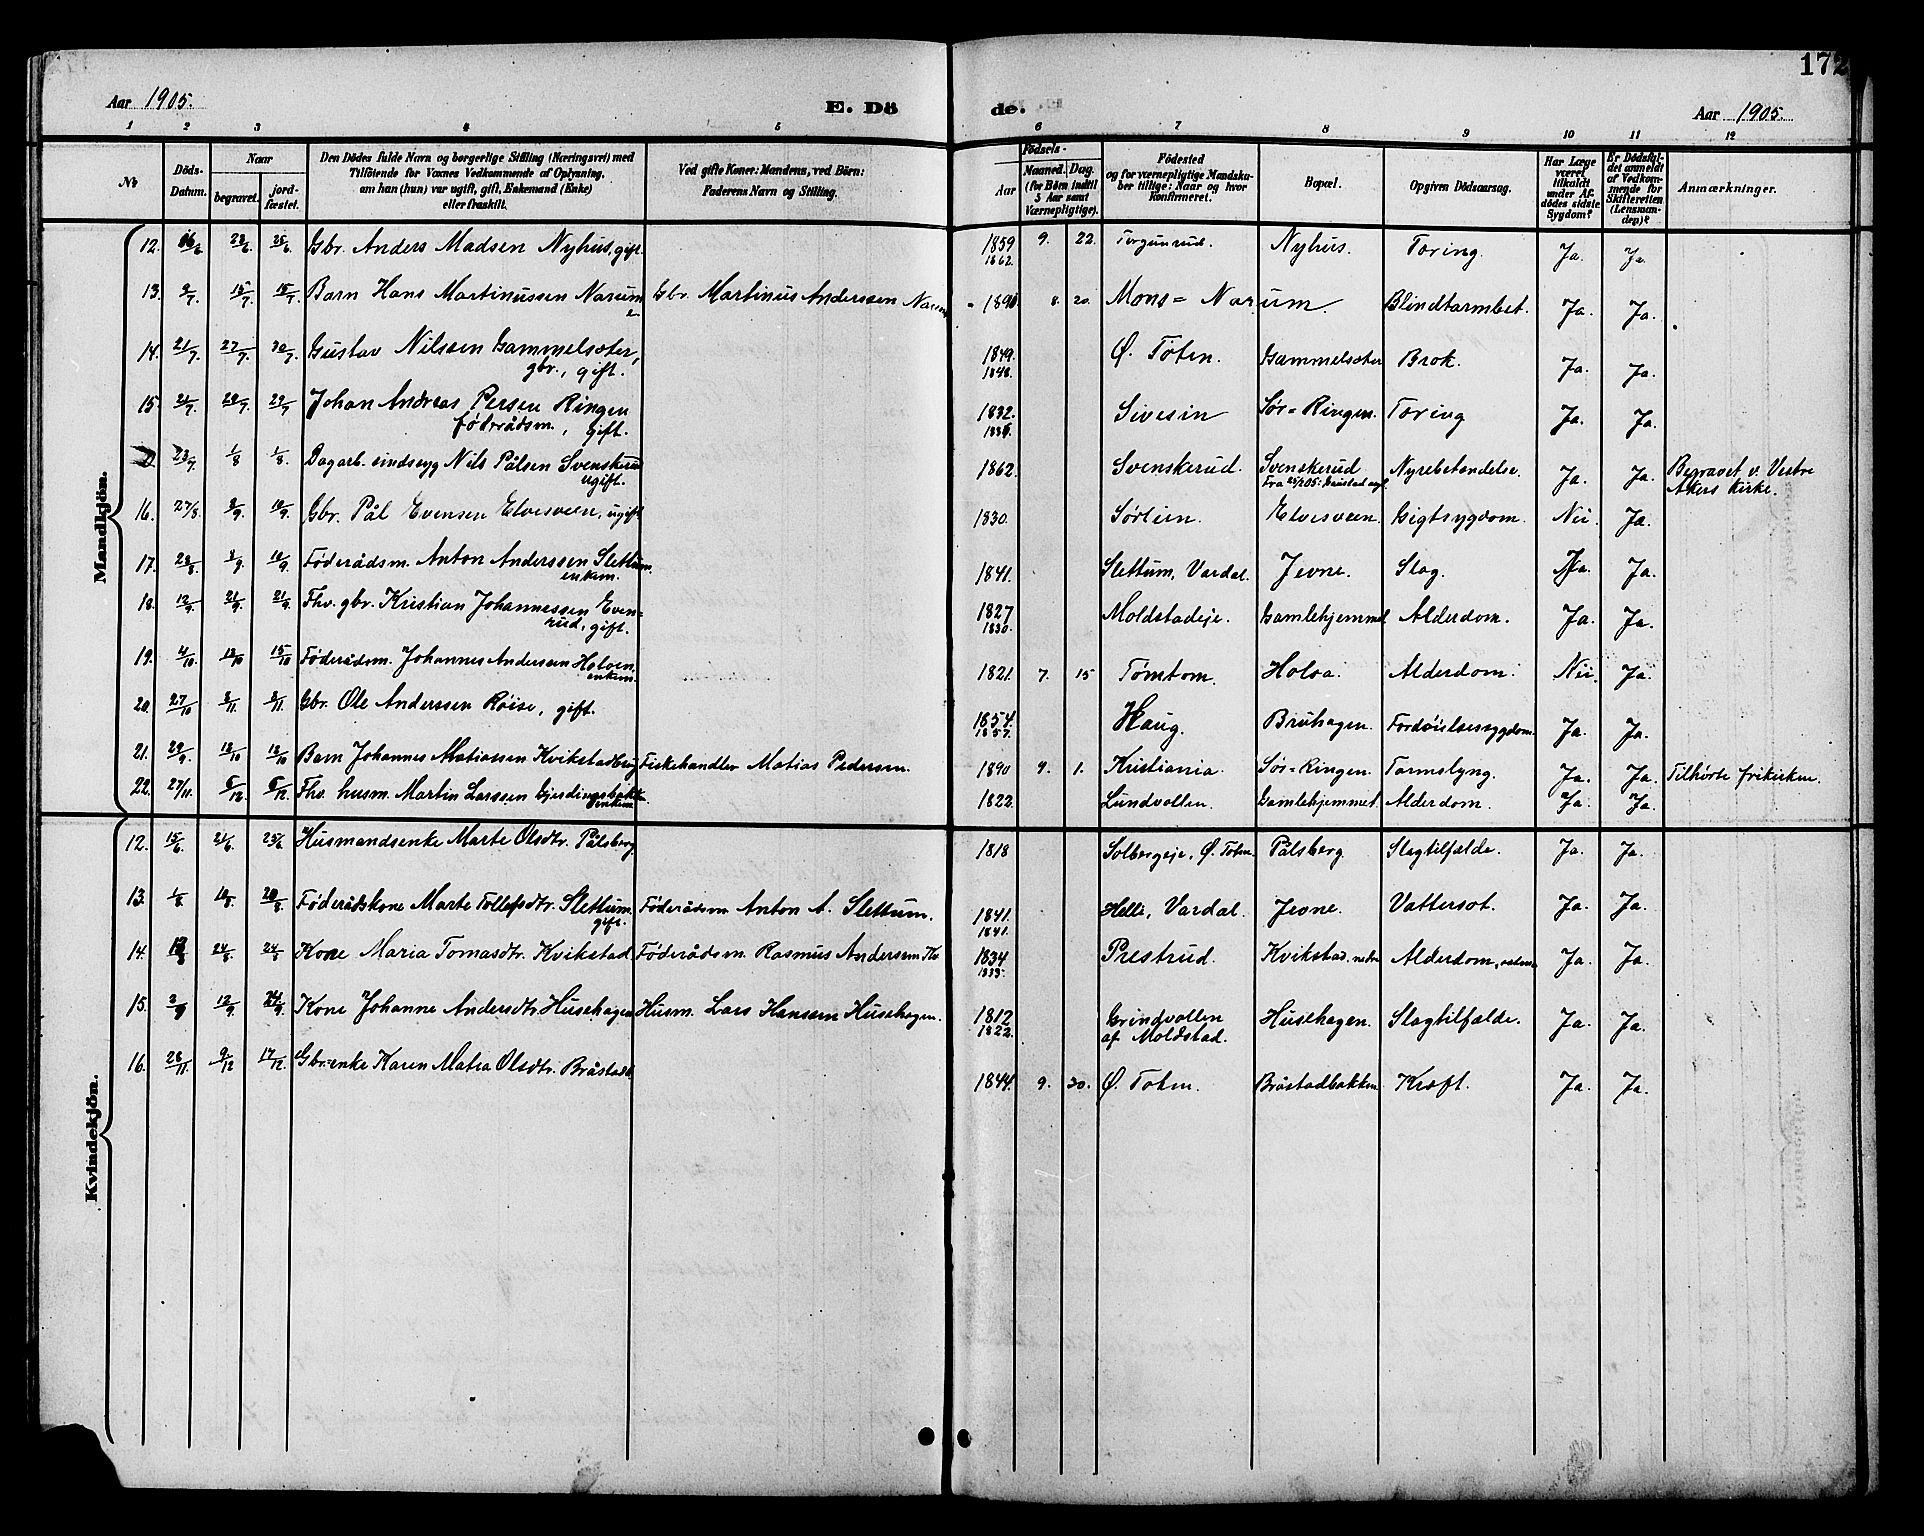 172
Aar 1905. E. Dö de. Aar 1905.
1 2 3 4 5 6 7 8 9 10 11 12
No
Döds-Datum.
Naar
begravet.
jord-fæstet.
Den Dödes fulde Navn og borgerlige Stilling (Næringsvei) med
Tilföiende for Voxnes Vedkommende af Oplysning,
om han (hun) var ugift, gift, Enkemand (Enke)
eller fraskilt.
Ved gifte Koner: Mandens, ved Börn:
Faderens Navn og Stilling.
Födsels-
Aar
Maaned. Dag.
(for Börn indtil
5 Aar samt
Værnepligtige).
Födested
og for værnepligtige Mandska-
ber tillige: Naar og hvor
konfirmeret.
Bopæl.
Opgiven Dödsaarsag.
Har Læge
været
tilkaldt
under Af-
dödes sidste
Sygdom?
Er Dödsfal-
det anmeldt
af Vedkom-
mende for
Skifteretten
(Lensman-
den)?
Anmærkninger.
Mandkjön.
12. 16/6 23/6 25/6 Gbr. Anders Madsen Nyhus, gift. 1859 9. 22. Torgunrud. Nyhus. Tæring. Ja. Ja.
1862.
13. 9/7 15/7 15/7 Barn Hans Martinussen Narum Gbr. Martinus Anderssen Narum 8. 20. Mons=Narum. Blindtarmbet. Ja. Ja.
14. 21/7 27/7 30/7 Gustav Nilssen Gammelsæter, 1849. Ø. Toten. Gammelsæter Brok. Ja. Ja.
gbr., gift. 1848.
15. 21/7 28/7 29/7 Johan Andreas Persen Ringen 1832. Sivesin Sør=Ringen. Tæring Ja. Ja.
føderådsm., gift.
23/7 1/8 1/8. Dagarb. sindssyg Nils Pålsen Svenskerud 1862. Svenskerud. Svenskerud Nyrebetændelse. Ja. Ja. Begravet v. Vestre
ugift. Akers kirke.
16. 27/8. 8/9 10/9. Gbr. Pål Evensen Elvesveen, ugift 1830. Sørlien. Elvesveen. Gigtsygdom. Nei. Ja.
17. 28/8 8/9. 10/9 Føderådsm. Anton Anderssen Slettum. 1841. Slettum, Vardal. Jevne. Slag. Ja. Ja.
enkem.
18. 12/9. 21/9 21/9. Fhv. gbr. Kristian Johannessen Even- 1827 Moldstadeje. Gamlehjemmet Alderdom. Ja. Ja.
rud, gift. 1830.
19. 4/10. 13/10 15/10 Føderådsm. Johannes Anderssen Holven. 1821. 7. 15 Tømtom. Holva. Alderdom. Nei. Ja.
enkem.
20. 27/10 8/11. 8/11. Gbr. Ole Anderssen Røise, gift. 1854. Haug. Bruhagen. Fordøielsessygdom. Ja. Ja.
1857.
21. 29/9. 12/10 12/10 Barn Johannes Matiassen Kvikstadbrug Fiskehandler Matias Pedersen. 1890 9. 1. Kristiania. Sør=Ringen. Tarmslyng. Ja. Ja. Tilhørte frikirken.
22. 27/11. 6/12. 6/12. Fhv. husm. Martin Larssen Gjerdingsbakke 1822. Lundvollen. Gamlehjemmet. Alderdom. Ja. Ja.
enkem.
Kvindekjön.
12. 15/6. 21/6. 25/6 Husmandsenke Marte Olsdtr. Pålsberg 1818 Solbergeje, Ø. Toten. Pålsberg Slagtilfælde. Ja. Ja.
13. 1/8 10/8. 20/8. Føderådskone Marte Tollefsdtr. Slettum. Føderådsm Anton A. Slettum. 1841. Helli, Vardal. Jevne. Vattersot. Ja. Ja.
gift. 1841.
14. 24/8. 24/8 Kone Maria Tomasdtr. Kvikstad Føderådsm. Rasmus Anderssen Kv. 1834 Prestrud. Kvikstad, nedre Alderdom, Ja. Ja.
1833.
15. 3/9 12/9. 24/9. Kone Johanne Andersdtr. Husehagen Husm. Lars Hansen Husehagen. 1812 Grindvollen Husehagen. Slagtilfælde. Ja. Ja.
1822. af Moldstad.
16. 28/11. 9/12 17/12. Gbr.enke Karen Matea Olsdtr. Bråstad. 1844. 9. 30. Ø. Toten. Bråstadbakken Kræft. Ja. Ja.